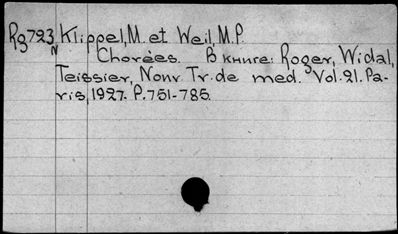 Rg723 Klippel, M. et Weil, M.P.
N Chorées. В книге: Roger, Widal,
Teissier, Nouv Tr. de med. Vol. 21. Pa-
ris, 1927. P. 751-785.